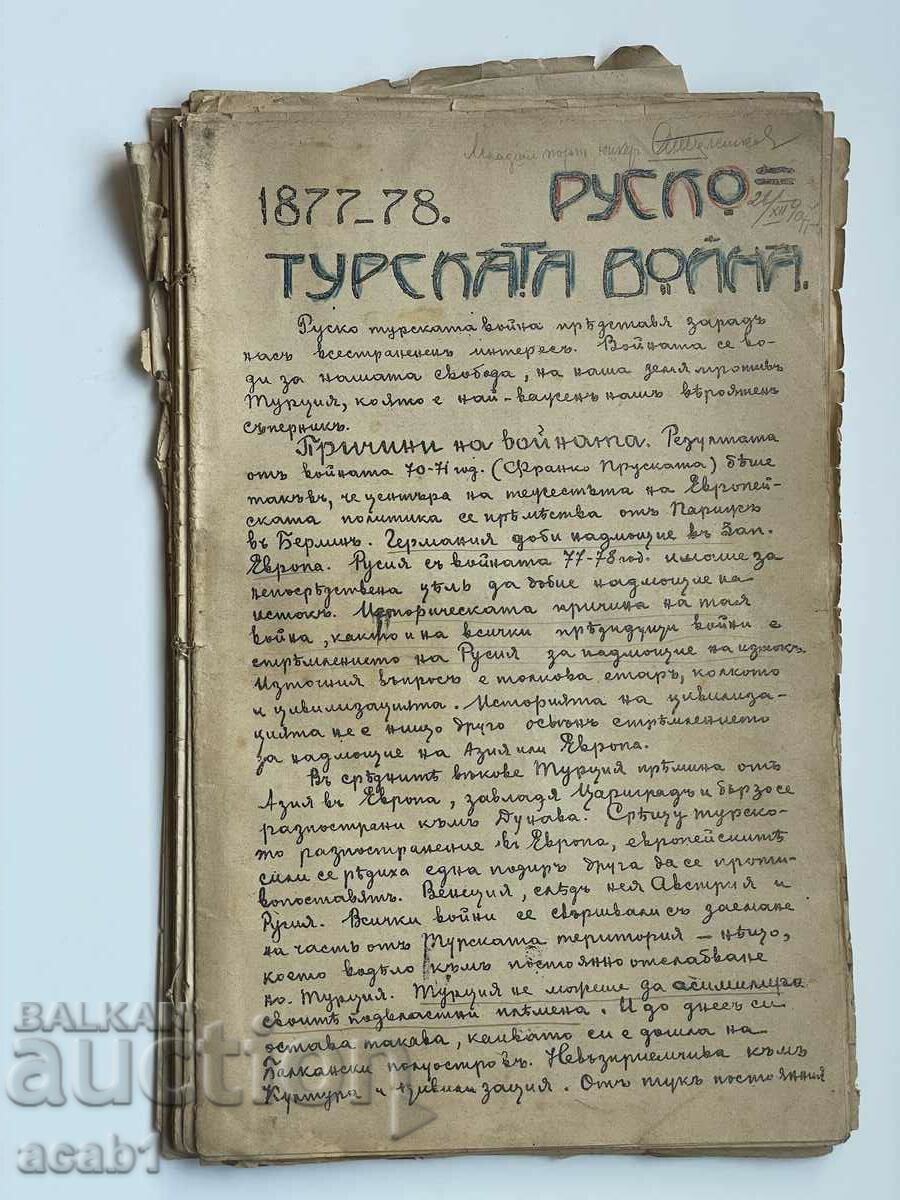 Младши порт. юнкер
1877-78. РУСКО=
21/XII
ТУРСКАТА ВОЙНА.
Руско турската война прѣдставя зарадъ
насъ всестраненъ интересъ. Войната се во-
ди за нашата свобода, на наша земя противъ
Турция, която е най-важенъ нашъ вѣроятенъ
съперникъ.
Причини на войната. Резултата
отъ войната 70-71 год. (Франко Пруската) бѣше
такъвъ, че центъра на тежестьта на Европей-
ската политика се прѣмѣства отъ Парижъ
въ Берлинъ. Германия доби надмощие въ Зап.
Европа. Русия съ войната 77-78 год. имаше за
непосрѣдствена цѣль да добие надмощие на
истокъ. Историческата причина на тая
война, както и на всички прѣдидущи войни е
стрѣмлението на Русия за надмощие на изтокъ.
Източния въпросъ е толкова старъ, колкото
и цивилизацията. Историята на цивилиза-
цията не е нищо друго освѣнъ стрѣмлението
за надмощие на Азия или Европа.
Въ срѣднитѣ вѣкове Турция прѣмина отъ
Азия въ Европа, завладя Цариградъ и бързо се
разпострани къмъ Дунава. Срѣщу турско-
то разпостранение въ Европа, европейскитѣ
сили се рѣдиха една подиръ друга да се проти-
вопоставятъ. Венеция, слѣдъ нея Австрия и
Русия. Всички войни се свършвали съ заемане
на часть отъ Турската територия – нѣщо,
което водѣло къмъ постоянно отслабване
на Турция. Турция не можеше да асимилира
своитѣ подвластни плѣмена. И до днесъ си
остава такава, каквато си е дошла на
Балкански полуостровъ. Невъзприемчива къмъ
Култура и цивилизация. Отъ тукъ постоянния
BALKAN
auction
acab1